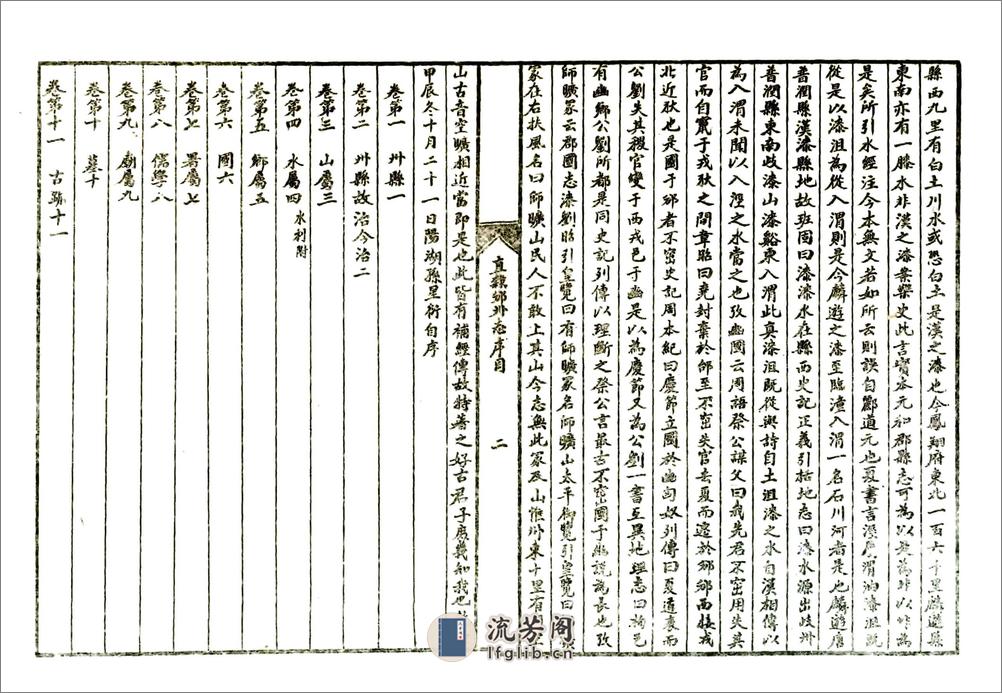 縣西九里有白土川水或恐白土是漢之漆也今鳳翔府東北一百六十里麟遊縣
東南亦有一漆水非漢之漆案樂史此言實本元和郡縣志可為以無為非以非為
是矣所引水經注今本無文若如所云則誤自酈道元也夏書言涇屬渭汭漆沮既
從是以漆沮為從入渭則是今麟遊之漆至臨潼入渭一名石川河者是也麟遊唐
普潤縣漢漆縣地故班固曰漆漆水在縣西史記正義引括地志曰漆水源出岐州
普潤縣東南岐漆山漆谿東入渭此真漆沮既從與詩自土沮漆之水自漢相傳以
為入渭未聞以入涇之水當之也攷豳國云周語祭公謀父曰我先君不窋用失其
官而自竄于戎狄之間韋昭曰堯封棄於邰至不窋失官去夏而遷於邠邠西接戎
北近狄也是國于邠者不窋史記周本紀曰慶節立國於豳匈奴列傳曰夏道衰而
公劉失其稷官變于西戎邑于豳是以為慶節又為公劉一書互異地理志曰栒邑
有豳鄉公劉所都是同史記列傳以理斷之祭公言最古不窋國于豳說為長也攷
師曠冢云郡國志漆劉昭引皇覽曰有師曠冢名師曠山太平御覽引皇覽曰
冢在右扶風名曰師曠山民人不敢上其山今志無此冢及山惟州東十里有
山古音空曠相近當即是也此皆有補經傳故特著之好古君子庶幾知我也
甲辰冬十月二十一日陽湖孫星衍自序
卷第一 州縣一
卷第二 州縣故治今治二
卷第三 山屬三
卷第四 水屬四 水利附
卷第五 鄉屬五
卷第六 國六
卷第七 署屬七
卷第八 儒學八
卷第九 廟屬九
卷第十 墓十
卷第十一 古蹟十一
直隸邠州志序目
二
流芳阁
lfglib.cn